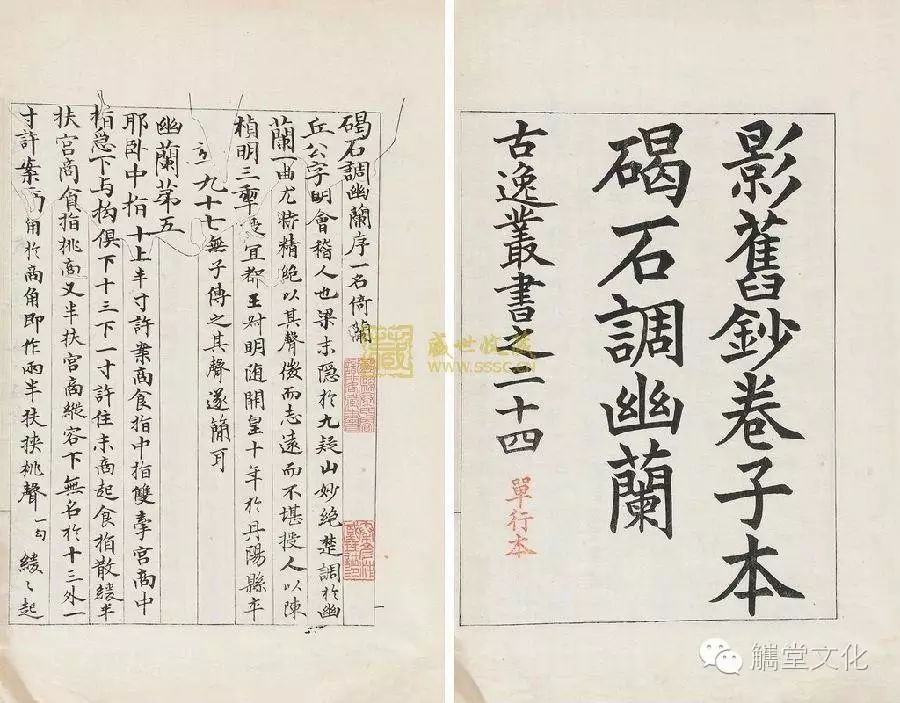 影舊鈔卷子本
碣石調幽蘭
古逸叢書之二十四
單行本
碣石調幽蘭序一名倚蘭
丘公字明會稽人也梁末隱於九疑山妙絶楚調於幽
蘭一曲尤特精絶以其聲微而志遠而不堪授人以陳
禎明三年授宜都王叔明隨開皇十年於丹陽縣卒
九十七無子傳之其聲遂簡耳
幽蘭第五
耶卧中指十上半寸許案商食指中指雙牽宮商中
指急下与拘俱下十三下一寸許住末商起食指散緩半
扶宮商食指挑商又半扶宮商縱容下無名於十三外一
寸許案商角於商角即作兩半扶挾挑聲一句緩〻起
盛世收藏
www.sssc.cn
觿堂文化